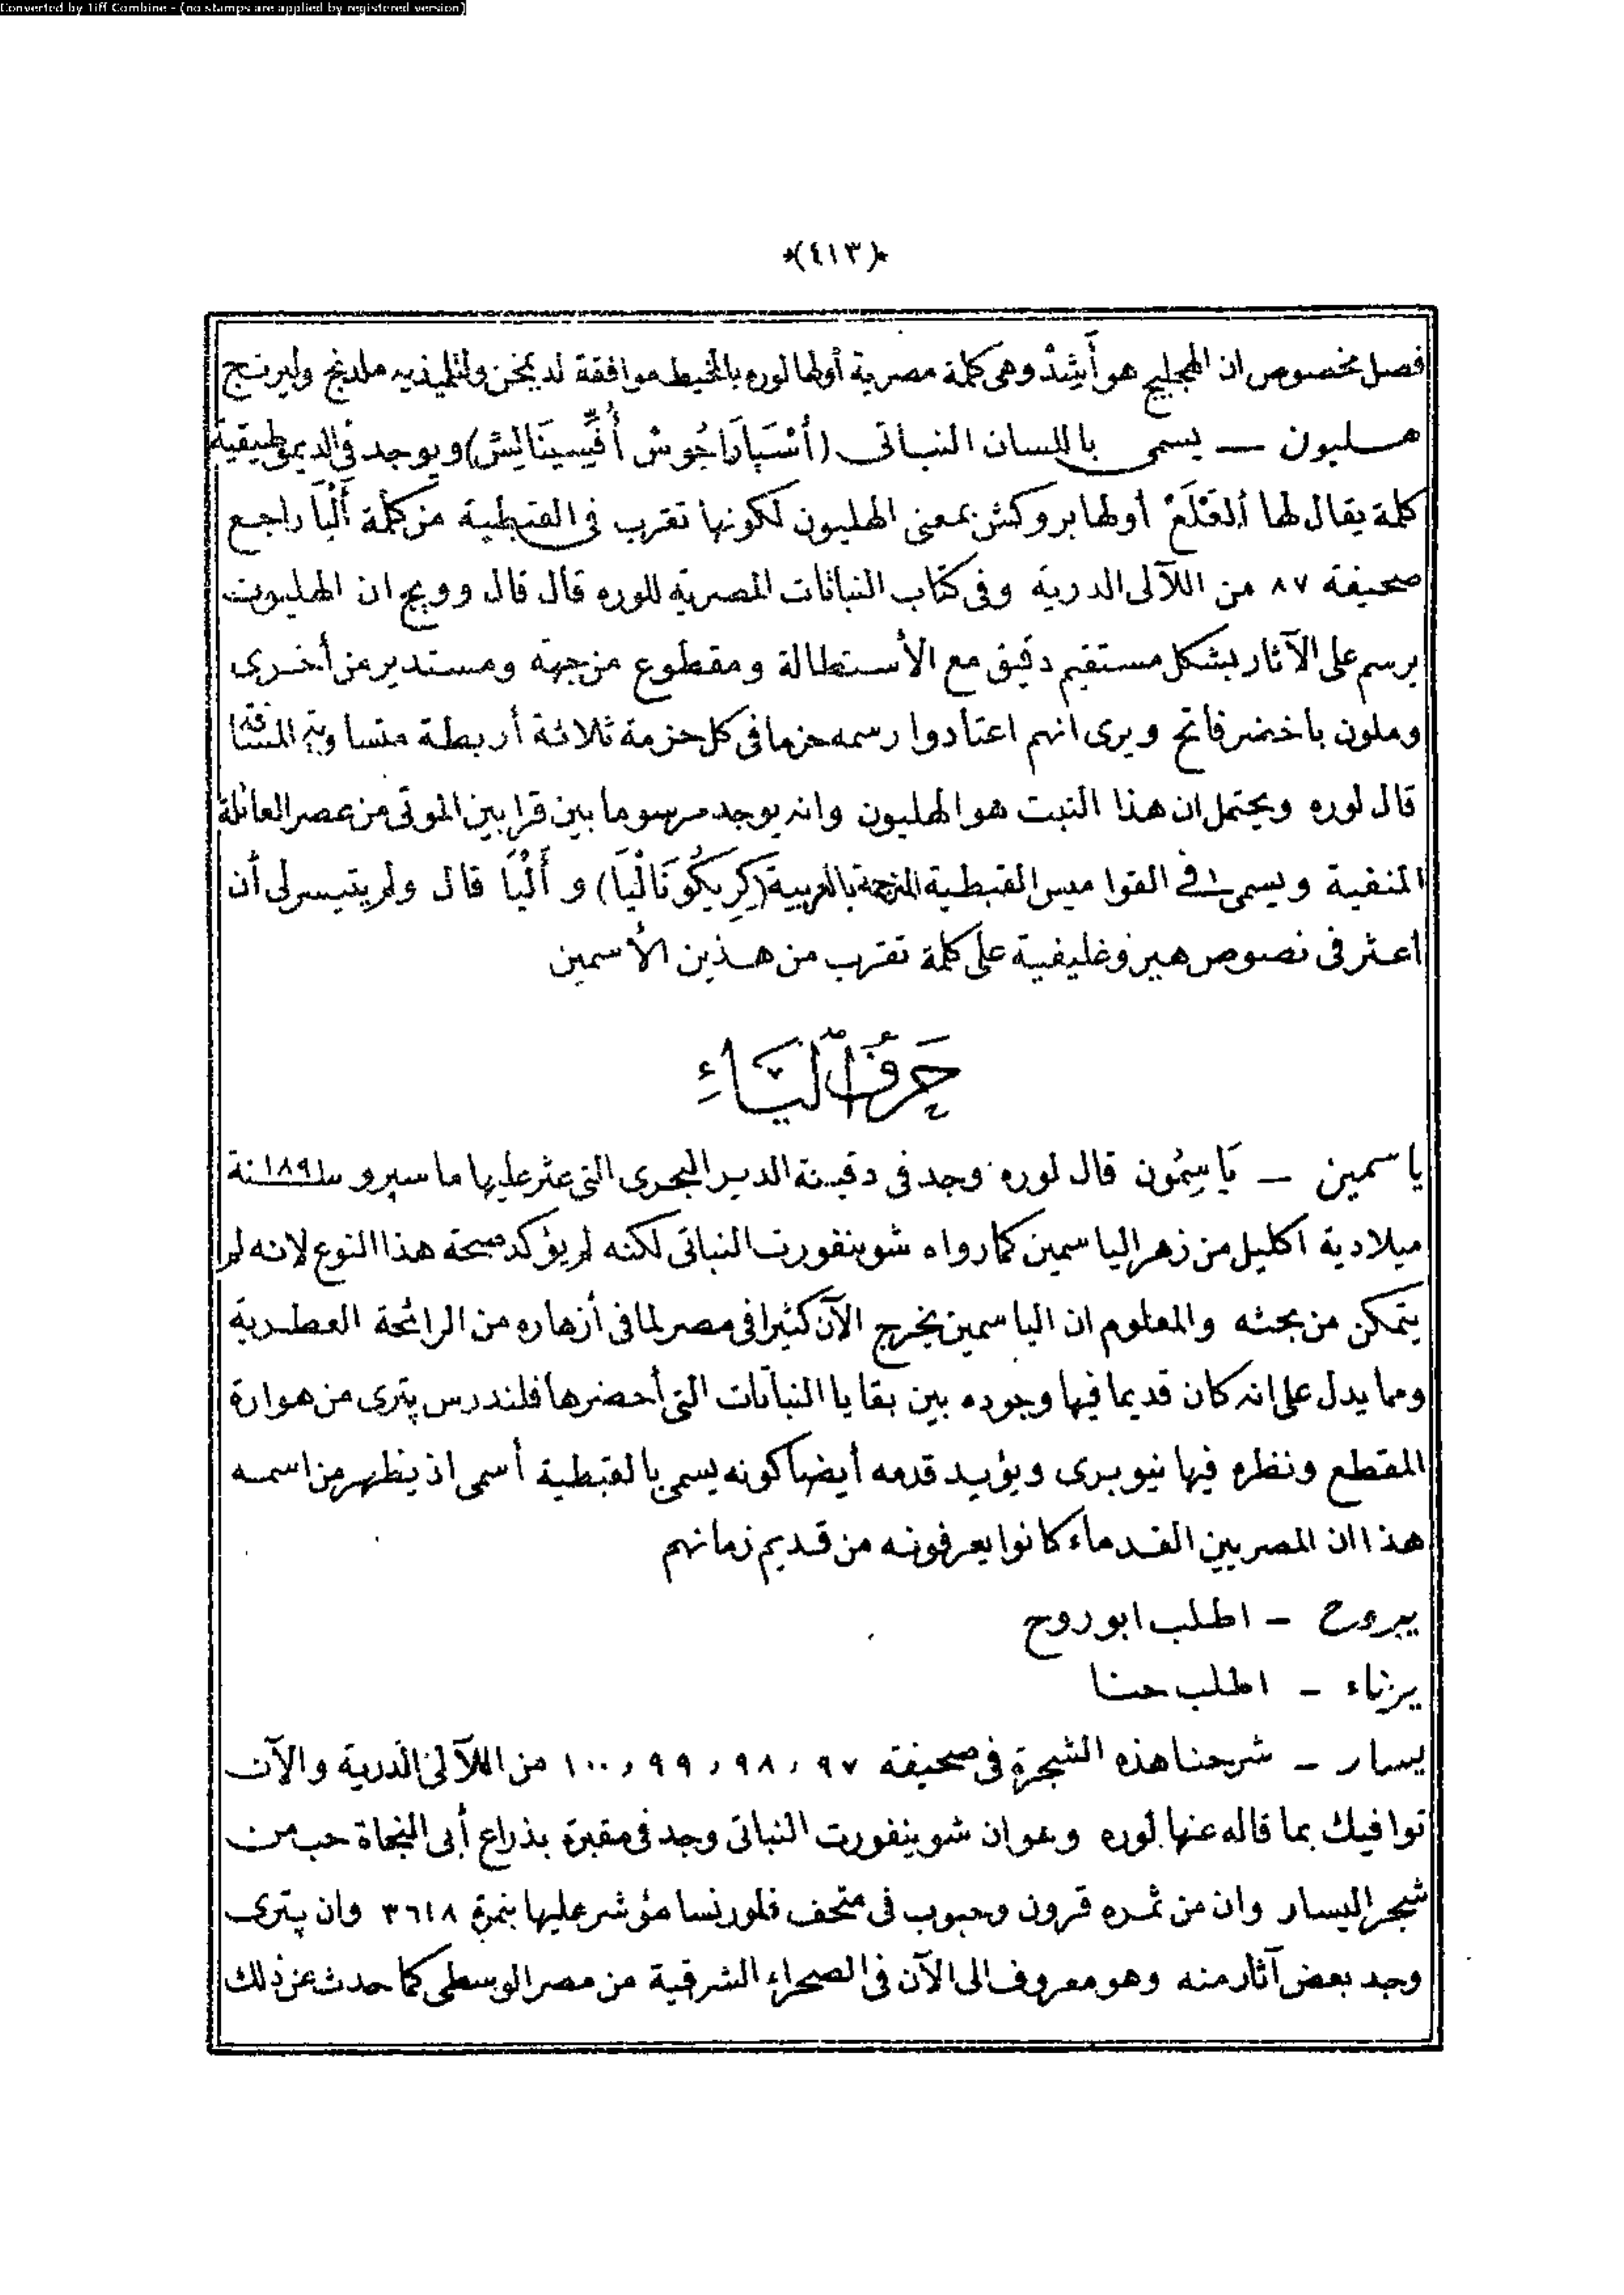 Converted by Tiff Combine - (no stamps are applied by registered version)
*(٤١٣)*
فصل مخصوص ان الهجليج هو أَشِدْ وهى كلمة مصرية أولها لوره بالمخيط موافقة لديمخن ولتلميذيه ملدنج وليرنج
هليون — يسمى باللسان النباتى (أَسْپَارَاجُوسْ أُفِّيسِينَالِيسْ) ويوجد فى الديموطيقية
كلمة يقال لها ألقَلَعْ أولها بروكش بمعنى الهليون لكونها تقرب فى القبطية من كلمة أَلْيَا راجع
صحيفة ٨٧ من اللآلى الدرية وفى كتاب النباتات المصرية للوره قال قال وويج ان الهليون
يرسم على الآثار بشكل مستقيم دقيق مع الأستطالة ومقطوع من جهة ومستدير من أخرى
وملون باخضر فاتح ويرى انهم اعتادوا رسمه حزما فى كل حزمة ثلاثة أربطة متساوية المسافة
قال لوره ويحتمل ان هذا النبت هو الهليون وانه يوجد مرسوما بين قرابين الموتى من عصر العائلة
المنفية ويسمى فى القواميس القبطية المترجمة بالعربية (كِرِيكُونَالْيَا) و أَلْيَا قال ولم يتيسر لى أن
اعثر فى نصوص هيروغليفية على كلمة تقرب من هذين الأسمين
حَرفُ الْيَاءِ
ياسمين — يَاسِمُون قال لوره وجد فى دفينة الدير البحرى التى عثر عليها ماسپرو سنة ١٨٩١
ميلادية اكليل من زهر الياسمين كما رواه شوينفورت النباتى لكنه لم يؤكد صحة هذا النوع لانه لم
يتمكن من بحثه والمعلوم ان الياسمين يخرج الآن كثيرا فى مصر لما فى أزهاره من الرائحة العطرية
ومما يدل على انه كان قديما فيها وجوده بين بقايا النباتات التى أحضرها فلندرس پترى من هوارة
المقطع ونظره فيها نيوبرى ويؤيد قدمه أيضا كونه يسمى بالقبطية أسمى اذ يظهر من اسمه
هذا ان المصريين القدماء كانوا يعرفونه من قديم زمانهم
يبروح — اطلب ابو روح
يرناء — اطلب حنا
يسار — شرحنا هذه الشجرة فى صحيفة ٩٧ , ٩٨ , ٩٩ , ١٠٠ من اللآلئ الدرية والآن
نوافيك بما قاله عنها لوره وهو ان شوينفورت النباتى وجد فى مقبرة بذراع أبى النجاة حب من
شجر اليسار وان من ثمره قرون وحبوب فى متحف فلورنسا مؤشر عليها بنمرة ٣٦١٨ وان پترى
وجد بعض آثار منه وهو معروف الى الآن فى الصحراء الشرقية من مصر الوسطى كما حدث عن ذلك